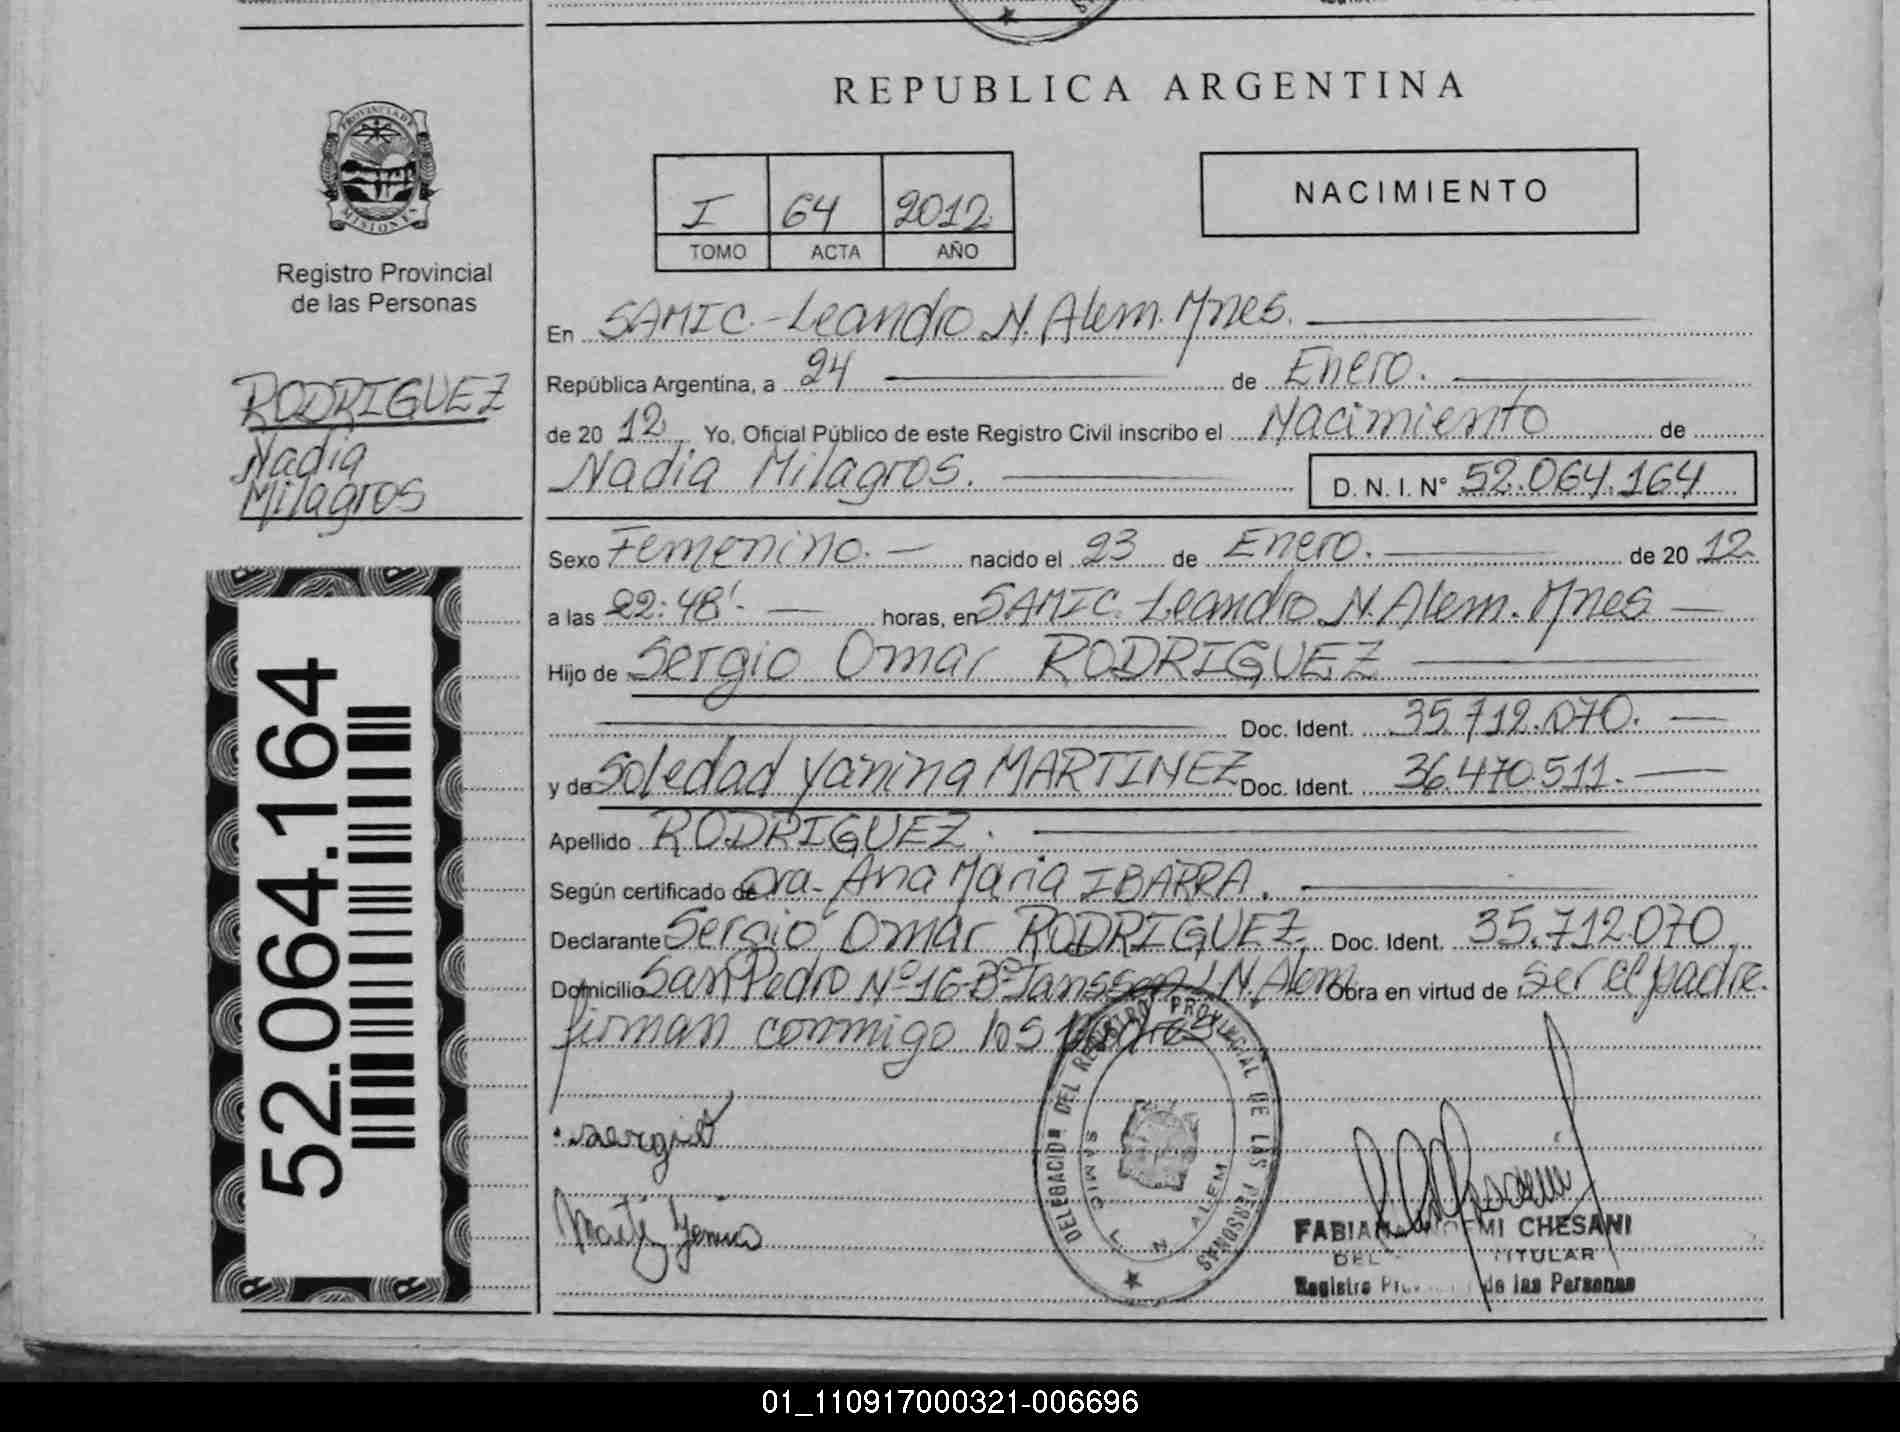 REPUBLICA ARGENTINA
PROVINCIA DE
MISIONES
Registro Provincial
de las Personas
I 64 2012
TOMO ACTA AÑO
NACIMIENTO
RODRIGUEZ
Nadia
Milagros
52.064.164
En SAMIC.-Leandro N. Alem. Mnes.
República Argentina, a 24 de Enero.
de 20 12 Yo, Oficial Público de este Registro Civil inscribo el Nacimiento de
Nadia Milagros. D. N. I. N° 52.064.164
Sexo Femenino. nacido el 23 de Enero. de 20 12.
a las 22:48'. horas, en SAMIC. Leandro N. Alem. Mnes
Hijo de Sergio Omar RODRIGUEZ
Doc. Ident. 35.712.070.
y de Soledad Yanina MARTINEZ Doc. Ident. 36.470.511.
Apellido RODRIGUEZ.
Según certificado de Dra. Ana Maria IBARRA.
Declarante Sergio Omar RODRIGUEZ. Doc. Ident. 35.712.070
Domicilio San Pedro Nº 16-Bº Janssen L.N. Alem Obra en virtud de ser el padre.
firman conmigo los padres
sergio
DELEGACION DEL REGISTRO PROVINCIAL DE LAS PERSONAS
SAMIC L. N. ALEM
FABIANA NOEMI CHESANI
TITULAR
Registro de las Personas
01_110917000321-006696